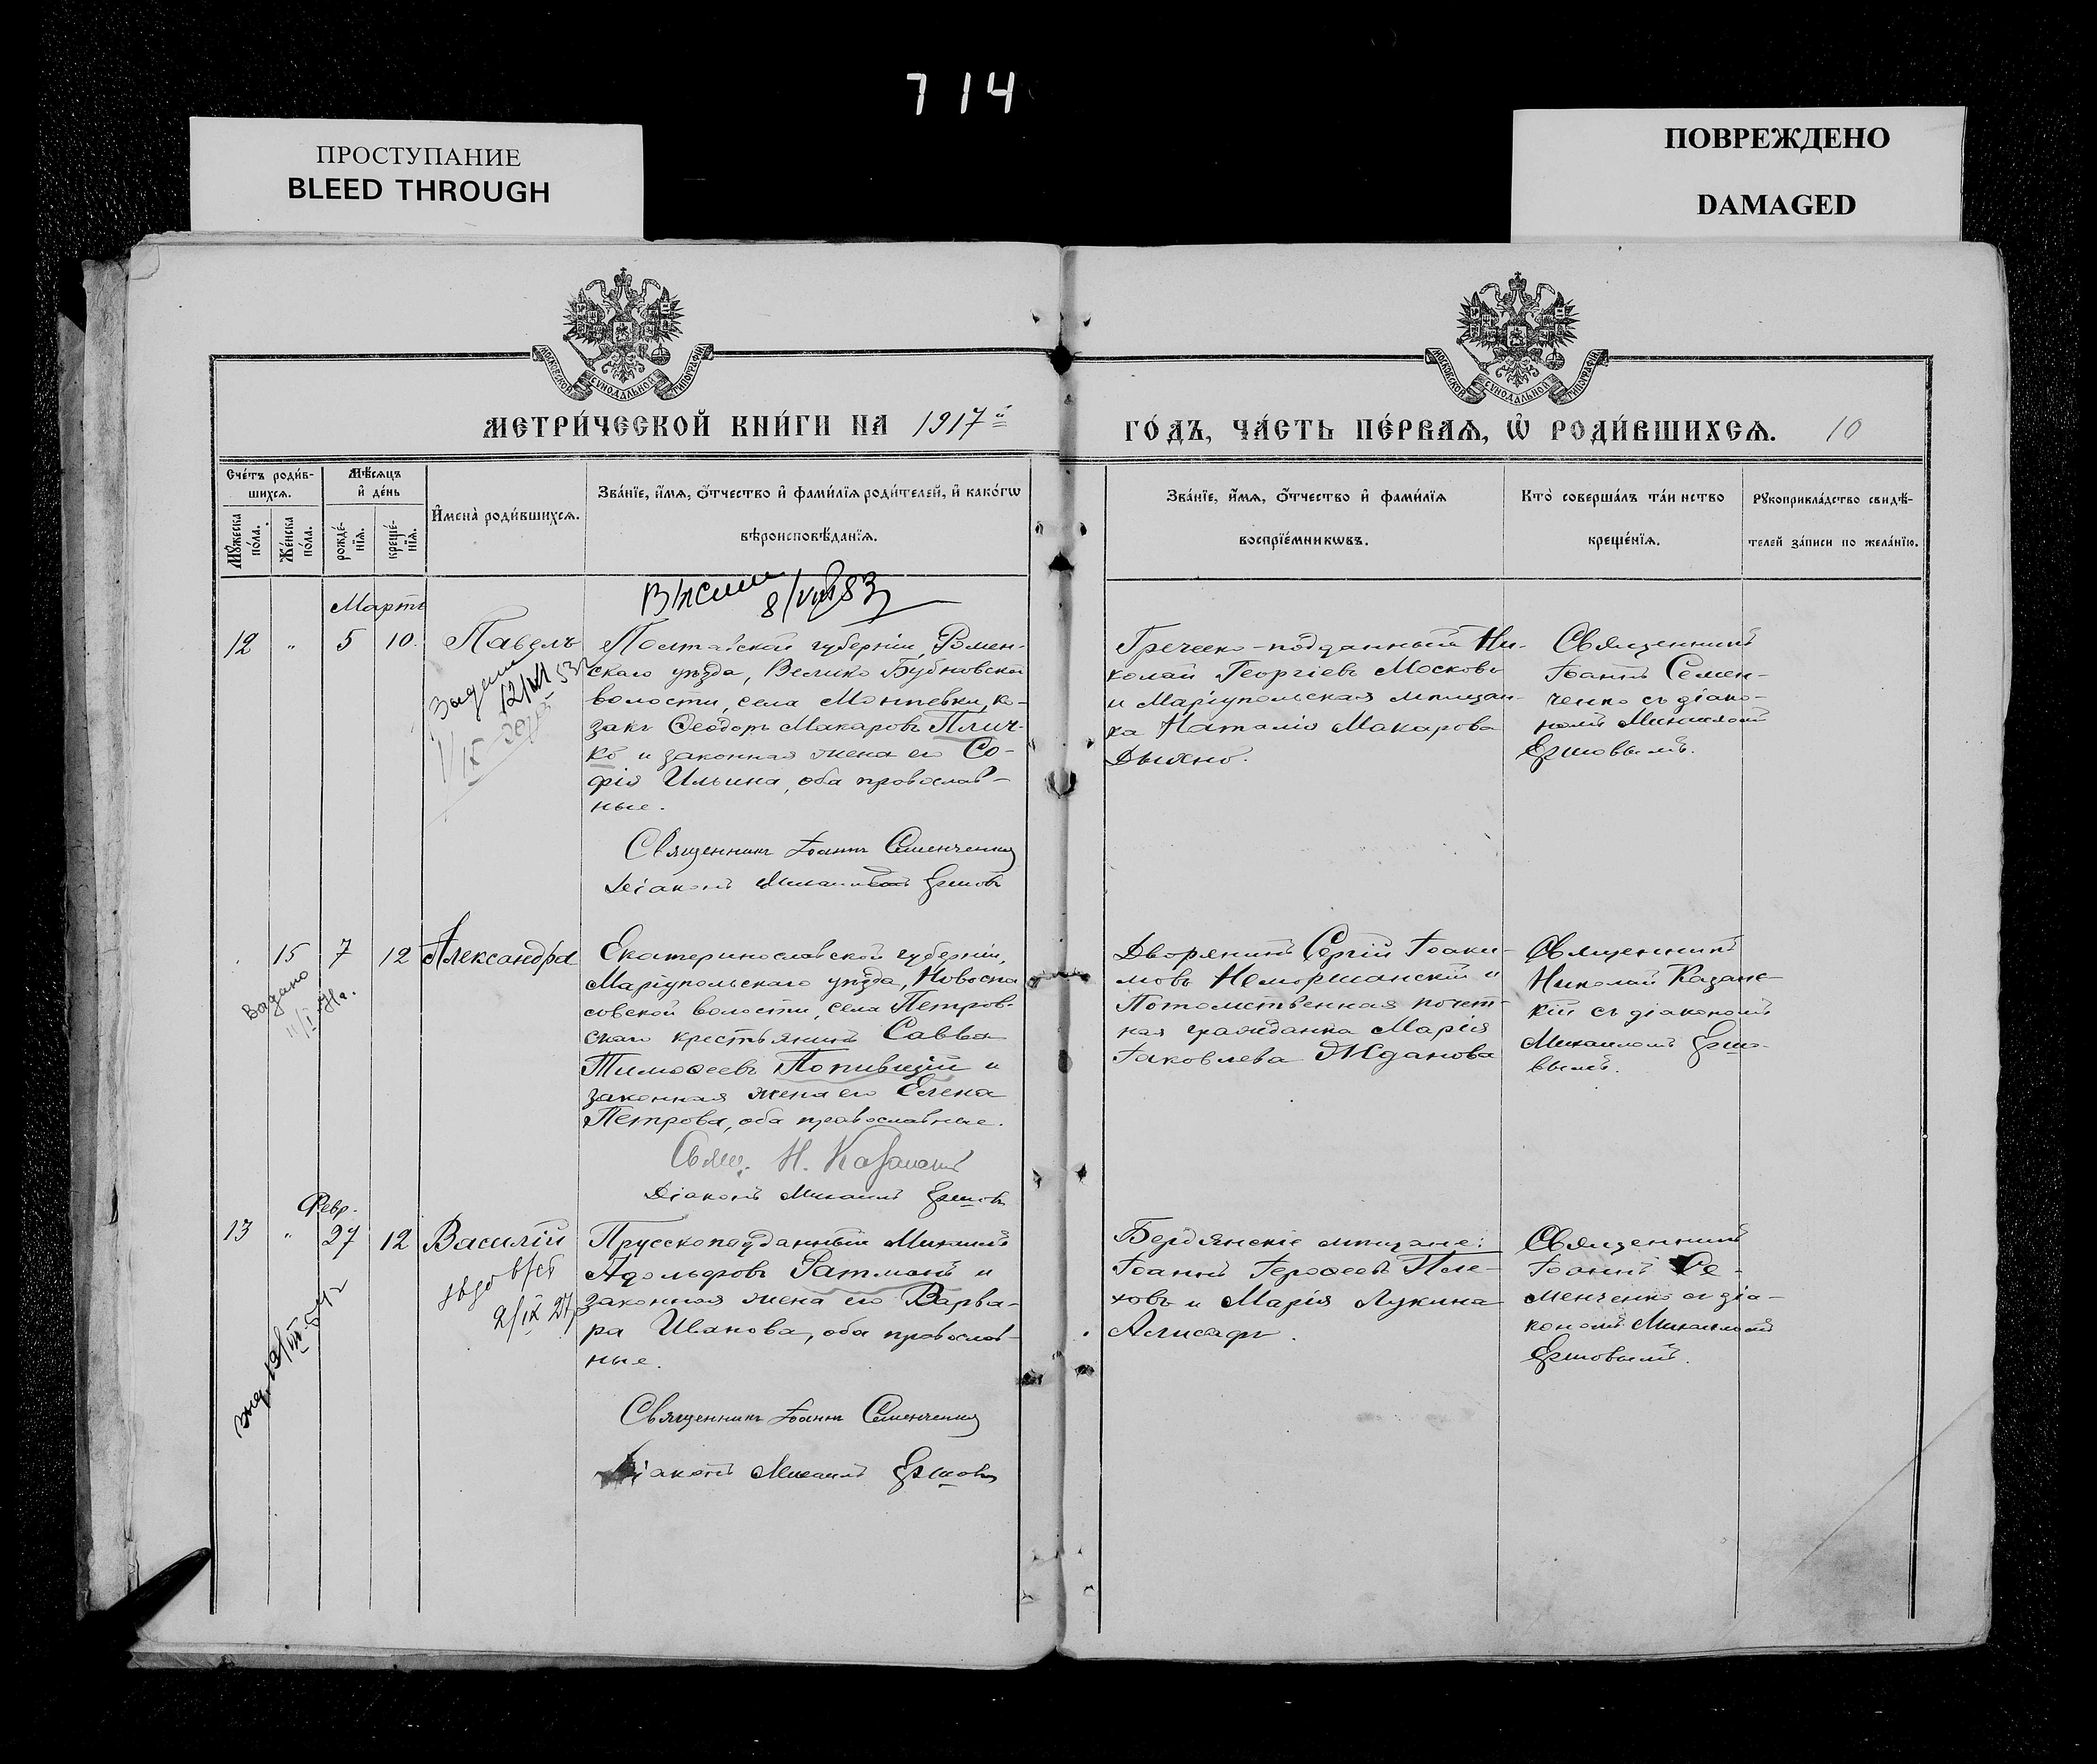 714
ПРОСТУПАНИЕ
BLEED THROUGH
ПОВРЕЖДЕНО
DAMAGED
МОСКОВСКОЙ СѴНОДАЛЬНОЙ ТИПОГРАФІИ
МОСКОВСКОЙ СѴНОДАЛЬНОЙ ТИПОГРАФІИ
МЕТРИ́ЧЕСКОЙ КНИ́ГИ НА 1917й
ГО́ДЪ, ЧА́СТЬ ПЕ́РВАѦ, Ѡ҆ РОДИ́ВШИХСѦ. 10
Сче́тъ роди́в-
шихсѧ.
Мꙋ́жеска по́ла.
Же́нска по́ла.
Мѣ́сѧцъ
и҆ де́нь
рожде́-
нїѧ.
креще́-
нїѧ.
И҆мена̀ роди́вшихсѧ.
Зва́нїе, и҆́мѧ, ѻ҆́тчество и҆ фами́лїѧ роди́телей, и҆ како́гѡ
вѣроисповѣ́данїѧ.
Зва́нїе, и҆́мѧ, ѻ҆́тчество и҆ фами́лїѧ
воспрїе́мникѡвъ.
Кто̀ соверша́лъ та́инство
креще́нїѧ.
Рꙋкоприкла́дство свидѣ́-
телей за́писи по жела́нїю.
8/VIII 83
Мартъ
12 " 5 10. Павелъ
Полтавской губерніи, Ромен-
скаго уѣзда, Велико Бубновской
волости, села, ко-
закъ Ѳеодоръ Макаровъ Плич-
ко и законная жена его Со-
фія Ильина, оба православ-
ные.
Священникъ Іоаннъ Семенченко
Діаконъ Михаилъ Ершовъ
Греческо-подданный Ни-
колай Георгіевъ Московъ
и Маріупольская мѣщан-
ка Наталія Макарова
Дыяно.
Священникъ
Іоаннъ Семен-
ченко съ діако-
номъ Михаиломъ
Ершовымъ.
15 7 12 Александра
Выдано
Екатеринославской губерніи,
Маріупольскаго уѣзда, Новоспа
совской волости, села Петров-
скаго крестьянинъ Савва
Тимоѳеевъ и
законная жена его Елена
Петрова, оба православные.
Свящ. Н. Казанскій
Діаконъ Михаилъ Ершовъ
Дворянинъ Сергій Іоаки-
мовъ и
Потомственная почет-
ная гражданка Марія
Іаковлева Жданова
Священникъ
Николай Казанс-
кій съ діакономъ
Михаиломъ Ершо-
вымъ.
Февр.
13 " 27 12 Василій
2/IX 27
Прусскоподданный Михаилъ
Адольфовъ Ратманъ и
законная жена его Варва-
ра Иванова, оба православ-
ные.
Священникъ Іоаннъ Семенченко
Діаконъ Михаилъ Ершовъ
Бердянскіе мѣщане:
Іоаннъ Іероѳеевъ Пле-
ховъ и Марія Лукина
Священникъ
Іоаннъ Се-
менченко съ діа-
кономъ Михаиломъ
Ершовымъ.